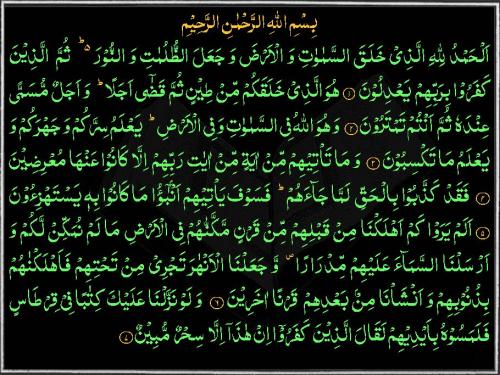 بِسْمِ اللهِ الرَّحْمٰنِ الرَّحِيْمِ
اَلْحَمْدُ لِلّٰهِ الَّذِيْ خَلَقَ السَّمٰوٰتِ وَ الْاَرْضَ وَ جَعَلَ الظُّلُمٰتِ وَ النُّوْرَ ۵ؕ ثُمَّ الَّذِيْنَ
كَفَرُوْا بِرَبِّهِمْ يَعْدِلُوْنَ ۝۱ هُوَ الَّذِيْ خَلَقَكُمْ مِّنْ طِيْنٍ ثُمَّ قَضٰۤى اَجَلًا ؕ وَ اَجَلٌ مُّسَمًّى
عِنْدَهٗ ثُمَّ اَنْتُمْ تَمْتَرُوْنَ ۝۲ وَ هُوَ اللهُ فِي السَّمٰوٰتِ وَ فِي الْاَرْضِ ؕ يَعْلَمُ سِرَّكُمْ وَ جَهْرَكُمْ وَ
يَعْلَمُ مَا تَكْسِبُوْنَ ۝۳ وَ مَا تَاْتِيْهِمْ مِّنْ اٰيَةٍ مِّنْ اٰيٰتِ رَبِّهِمْ اِلَّا كَانُوْا عَنْهَا مُعْرِضِيْنَ
۝۴ فَقَدْ كَذَّبُوْا بِالْحَقِّ لَمَّا جَآءَهُمْ ؕ فَسَوْفَ يَاْتِيْهِمْ اَنْۢبٰٓؤُا مَا كَانُوْا بِهٖ يَسْتَهْزِءُوْنَ
۝۵ اَلَمْ يَرَوْا كَمْ اَهْلَكْنَا مِنْ قَبْلِهِمْ مِّنْ قَرْنٍ مَّكَّنّٰهُمْ فِي الْاَرْضِ مَا لَمْ نُمَكِّنْ لَّكُمْ وَ
اَرْسَلْنَا السَّمَآءَ عَلَيْهِمْ مِّدْرَارًا ۪ وَّ جَعَلْنَا الْاَنْهٰرَ تَجْرِيْ مِنْ تَحْتِهِمْ فَاَهْلَكْنٰهُمْ
بِذُنُوْبِهِمْ وَ اَنْشَاْنَا مِنْۢ بَعْدِهِمْ قَرْنًا اٰخَرِيْنَ ۝۶ وَ لَوْ نَزَّلْنَا عَلَيْكَ كِتٰبًا فِيْ قِرْطَاسٍ
فَلَمَسُوْهُ بِاَيْدِيْهِمْ لَقَالَ الَّذِيْنَ كَفَرُوْۤا اِنْ هٰذَاۤ اِلَّا سِحْرٌ مُّبِيْنٌ ۝۷